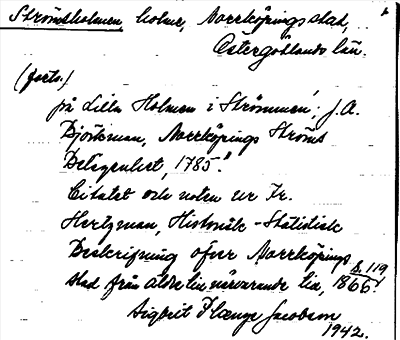 Strömsholmen, holme, Norrköpings stad,
Östergötlands län.
(forts.)
på Lilla Holmen i Strömmen; J.A.
Björkman, Norrköpings Ströms
Belägenhet, 1785."
Citatet och noten ur Fr.
Hertzman, Historisk-Statistisk
Beskrifning öfver Norrköpings
stad från äldre till närvarande tid, 1866. s. 119.
Sigbrit Plænge Jacobson
1942.